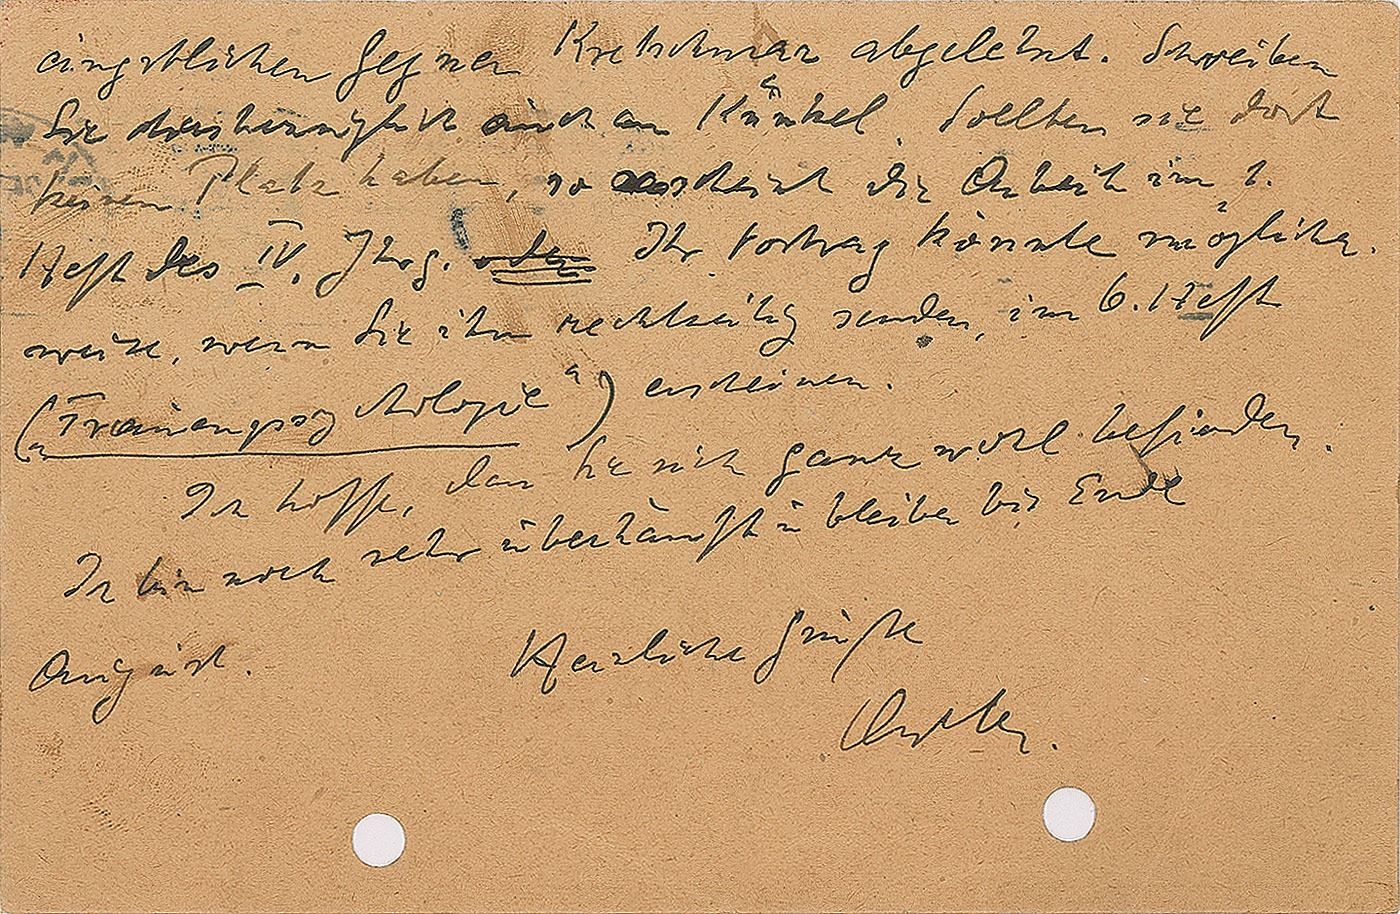 ängstlichen Gegner Kretschmar abgelehnt. Schreiben
Sie diesbezüglich auch an Künkel. Sollten sie dort
keinen Platz haben, so erscheint die Arbeit im 1.
Heft des IV. Jhrg. Ihr Vortrag könnte möglicher-
weise, wenn Sie ihn rechtzeitig senden, im 6. Heft
(„Frauenpsychologie“) erscheinen.
Ich hoffe, dass Sie sich ganz wohl befinden.
Ich bin noch sehr überhäuft u bleibe bis Ende
August.
Herzliche Grüße
Adler.